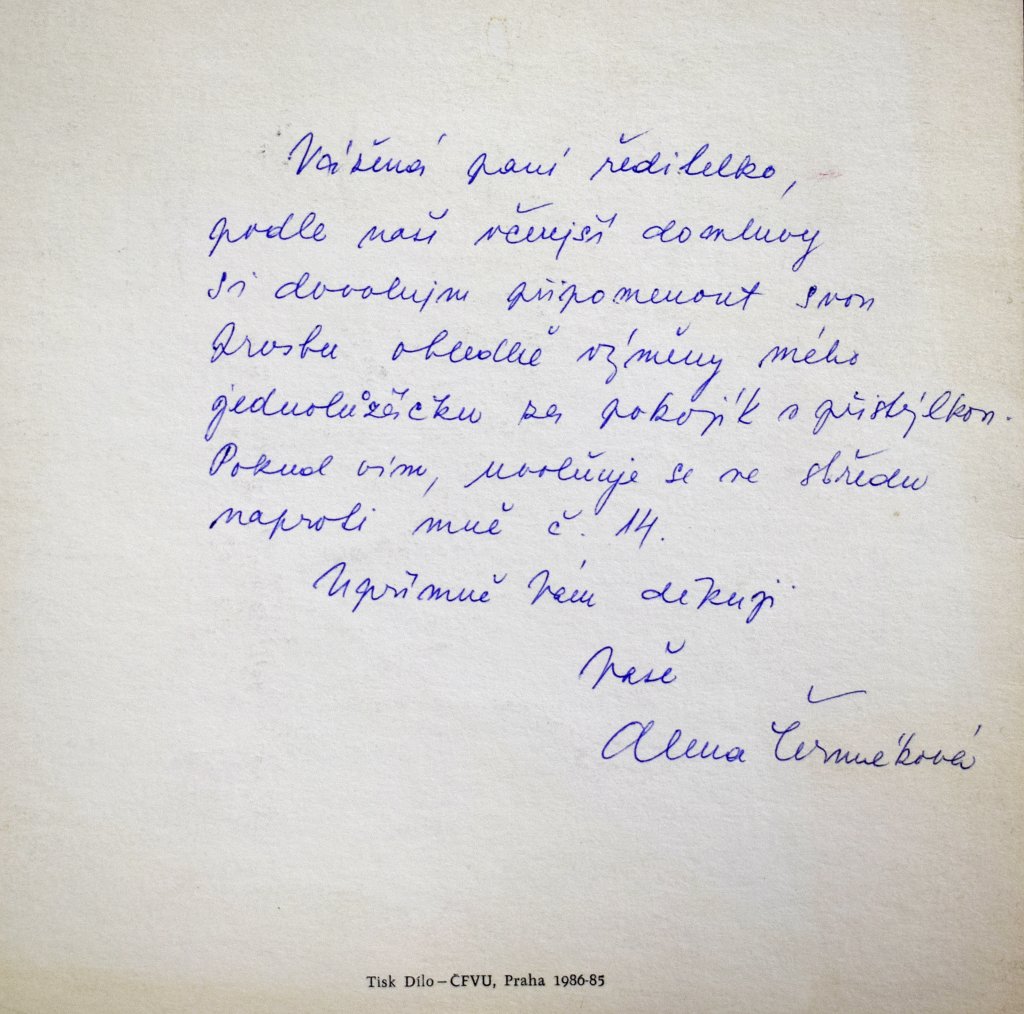 Vážená paní ředitelko,
podle naší včerejší domluvy
si dovoluji připomenout svou
prosbu ohledně výměny mého
jednolůžáčku za pokojík s přistýlkou.
Pokud vím, uvolňuje se ve středu
naproti mně č. 14.
Upřímně Vám děkuji
Vaše
Alena Čermáková
Tisk Dílo – ČFVU, Praha 1986-85